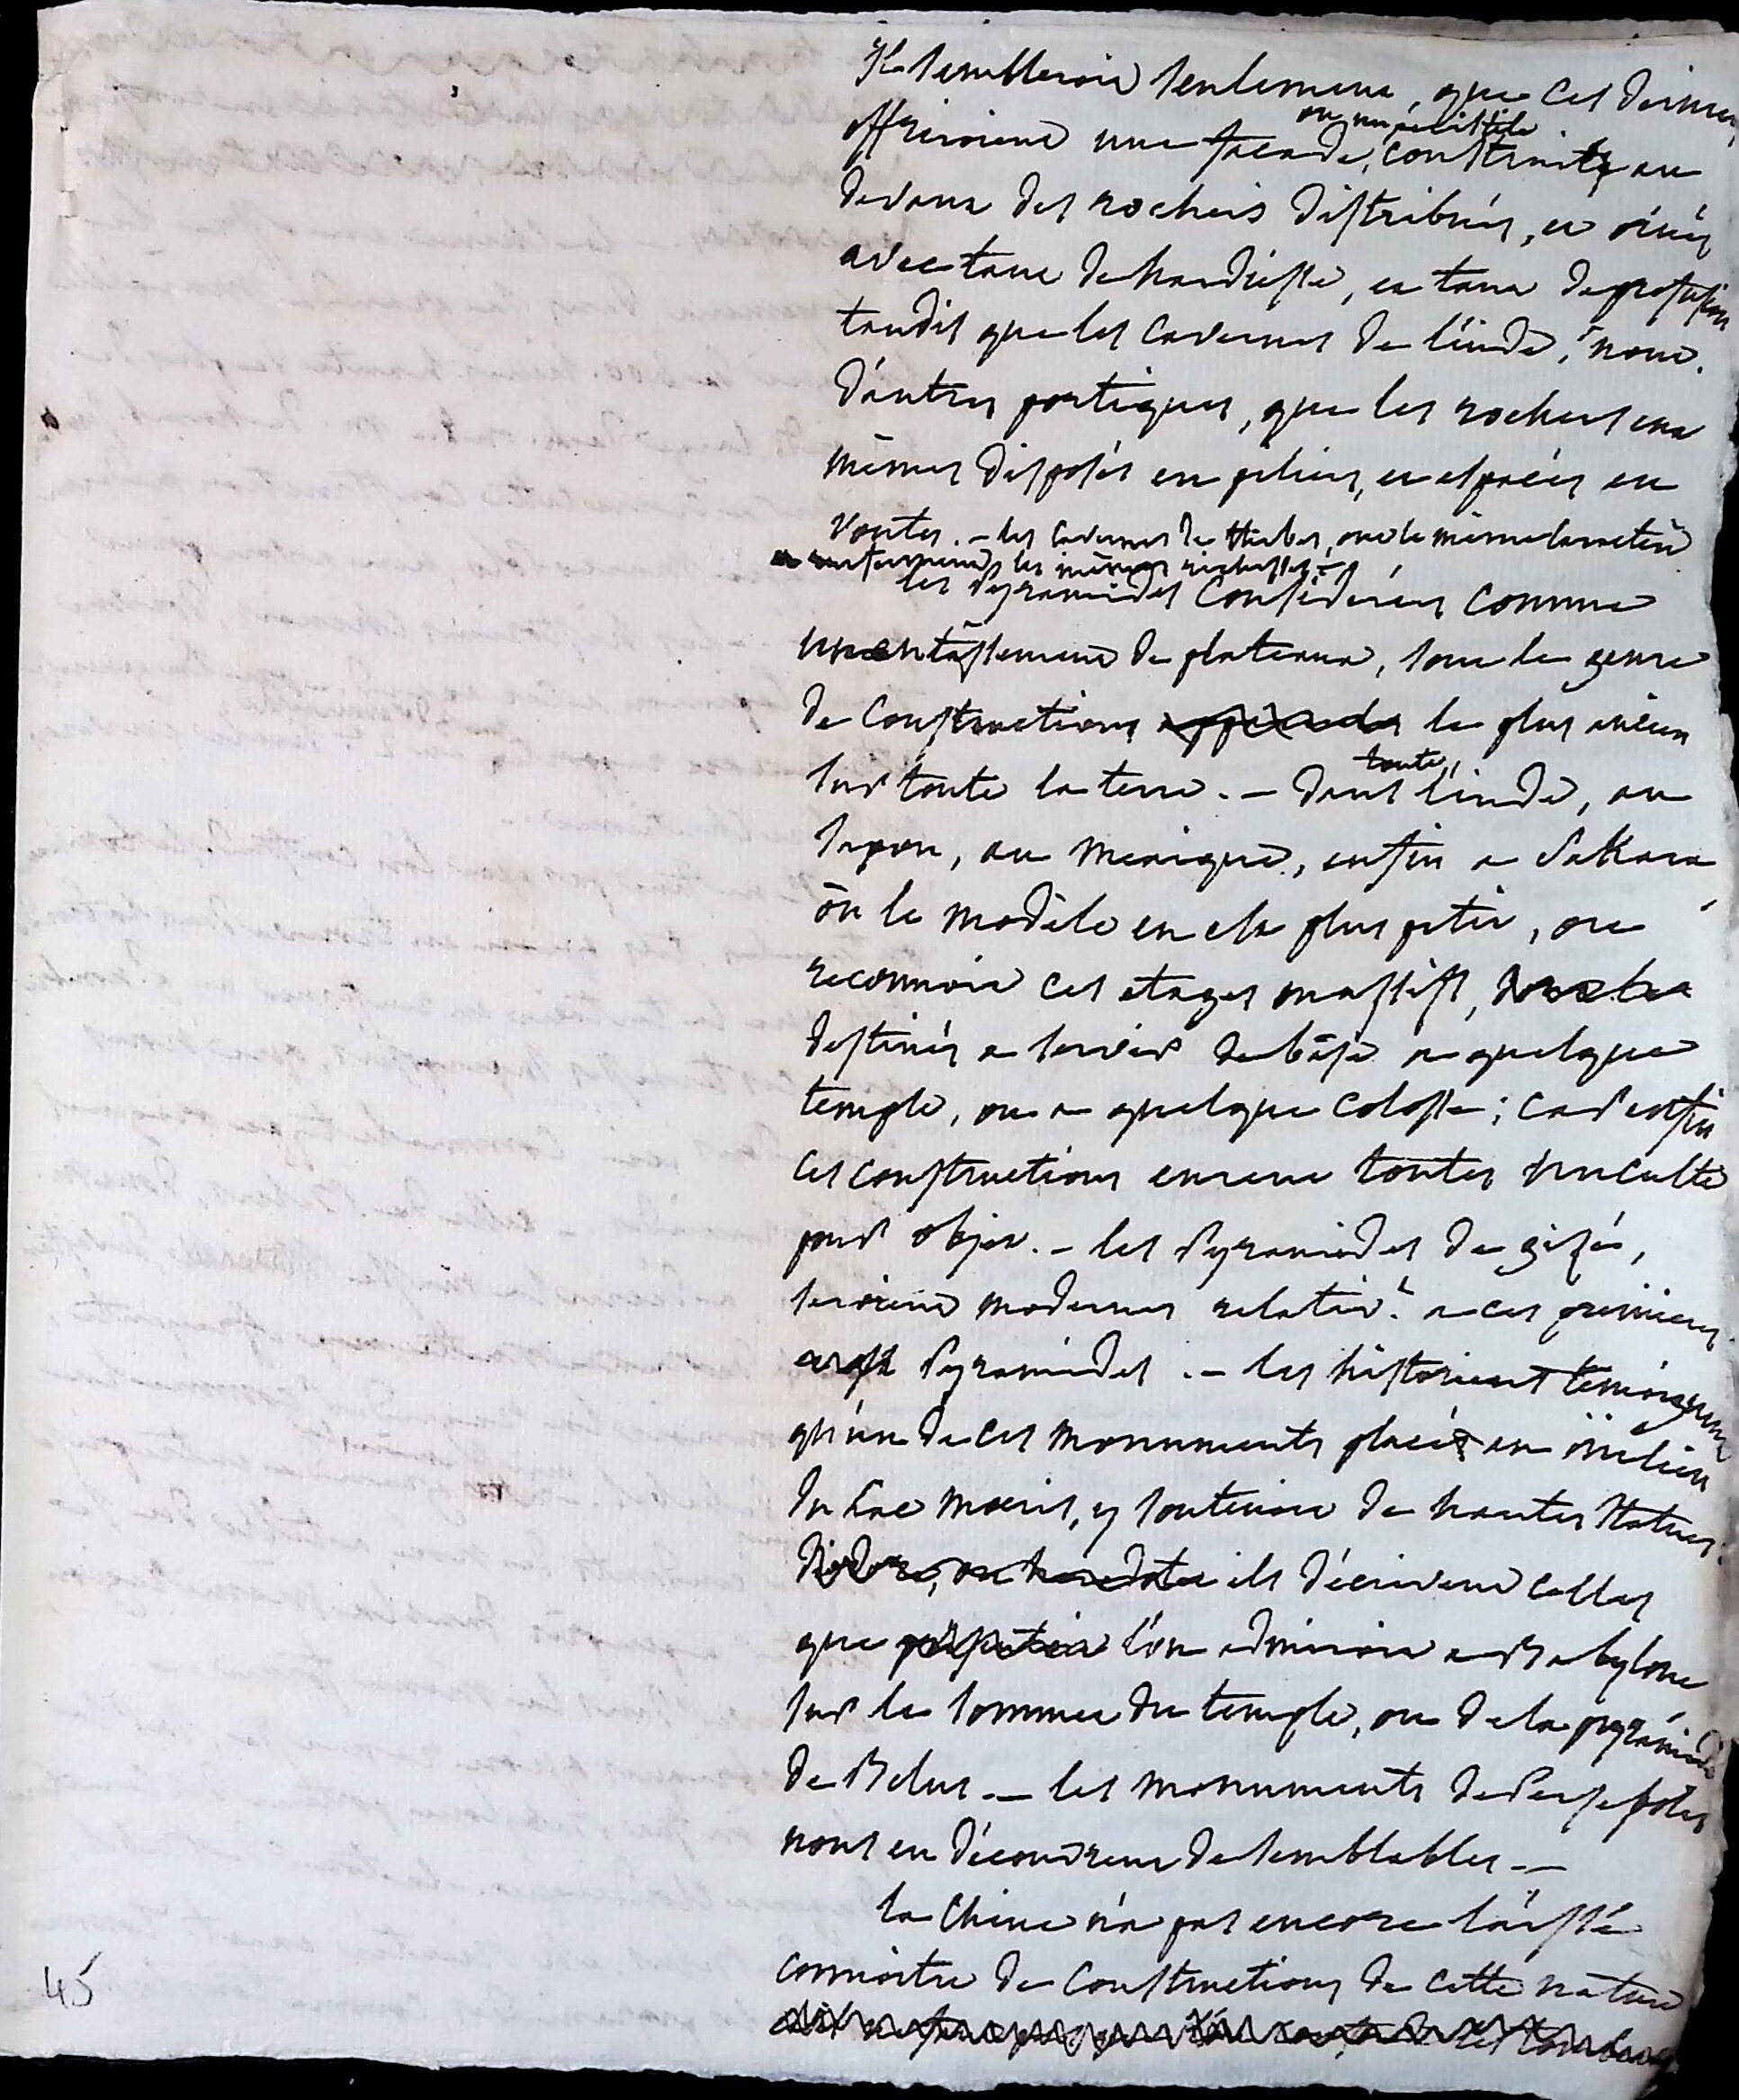 Il sembleroit seulement, que ces derniers
ou un péristile
offriroient une façade, construite au
devant des rochers distribués, et ornés
avec tant de hardiesse, et tant de profusion
tandis que les cavernes de l'inde, n'ont
d'autres portiques, que les rochers eux
mêmes disposés en piliers, et espacés en
voutes. – les cavernes de thebes, ont le même caractère
et renferment les mêmes richesses –
les Pyramides considérées comme
un entâssement de plateaux, sont le genre
de constructions le plus ancien
sur toute la terre. – dans toute l'inde, au
Japon, au mexique, enfin a Sakara
où le modèle en est plus petit, on
reconnoit ces etages massifs,
destinés a servir de bâse a quelque
temple, ou a quelque colosse; car enfin
ces constructions eurent toutes un culte
pour objet. – les Pyramides de gizéh,
seroient modernes relativt. a ces premieres
Pyramides. – les historiens temoignent
qu'un de ces monuments placé au milieu
du Lac moeris, y soutenoit de hautes statues.
diodore, ou herodote ils décrivent celles
que l'on admiroit a Babylone
sur le sommet du temple, ou de la pyramide
de Belus. – les monuments de Persepolis
nous en découvrent de semblables. –
la Chine n'a pas encore laissé
connoitre de constructions de cette nature
45